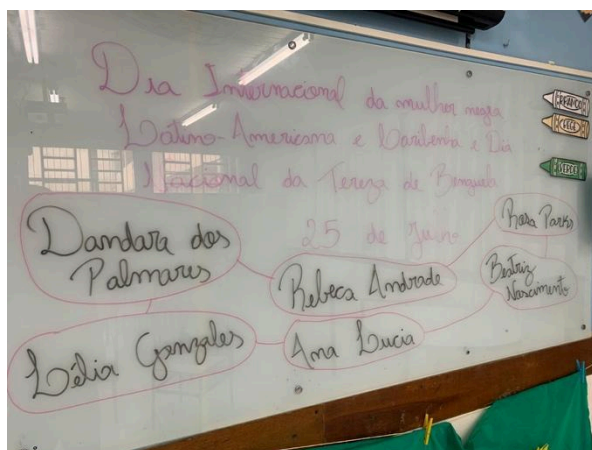 Dia Internacional da mulher negra
Latino-Americana e Caribenha e Dia
Nacional da Tereza de Benguela
25 de
Dandara dos
Palmares
Rebeca Andrade
Rosa Parks
Beatriz
Nascimento
Lélia Gonzales
Ana Lucia